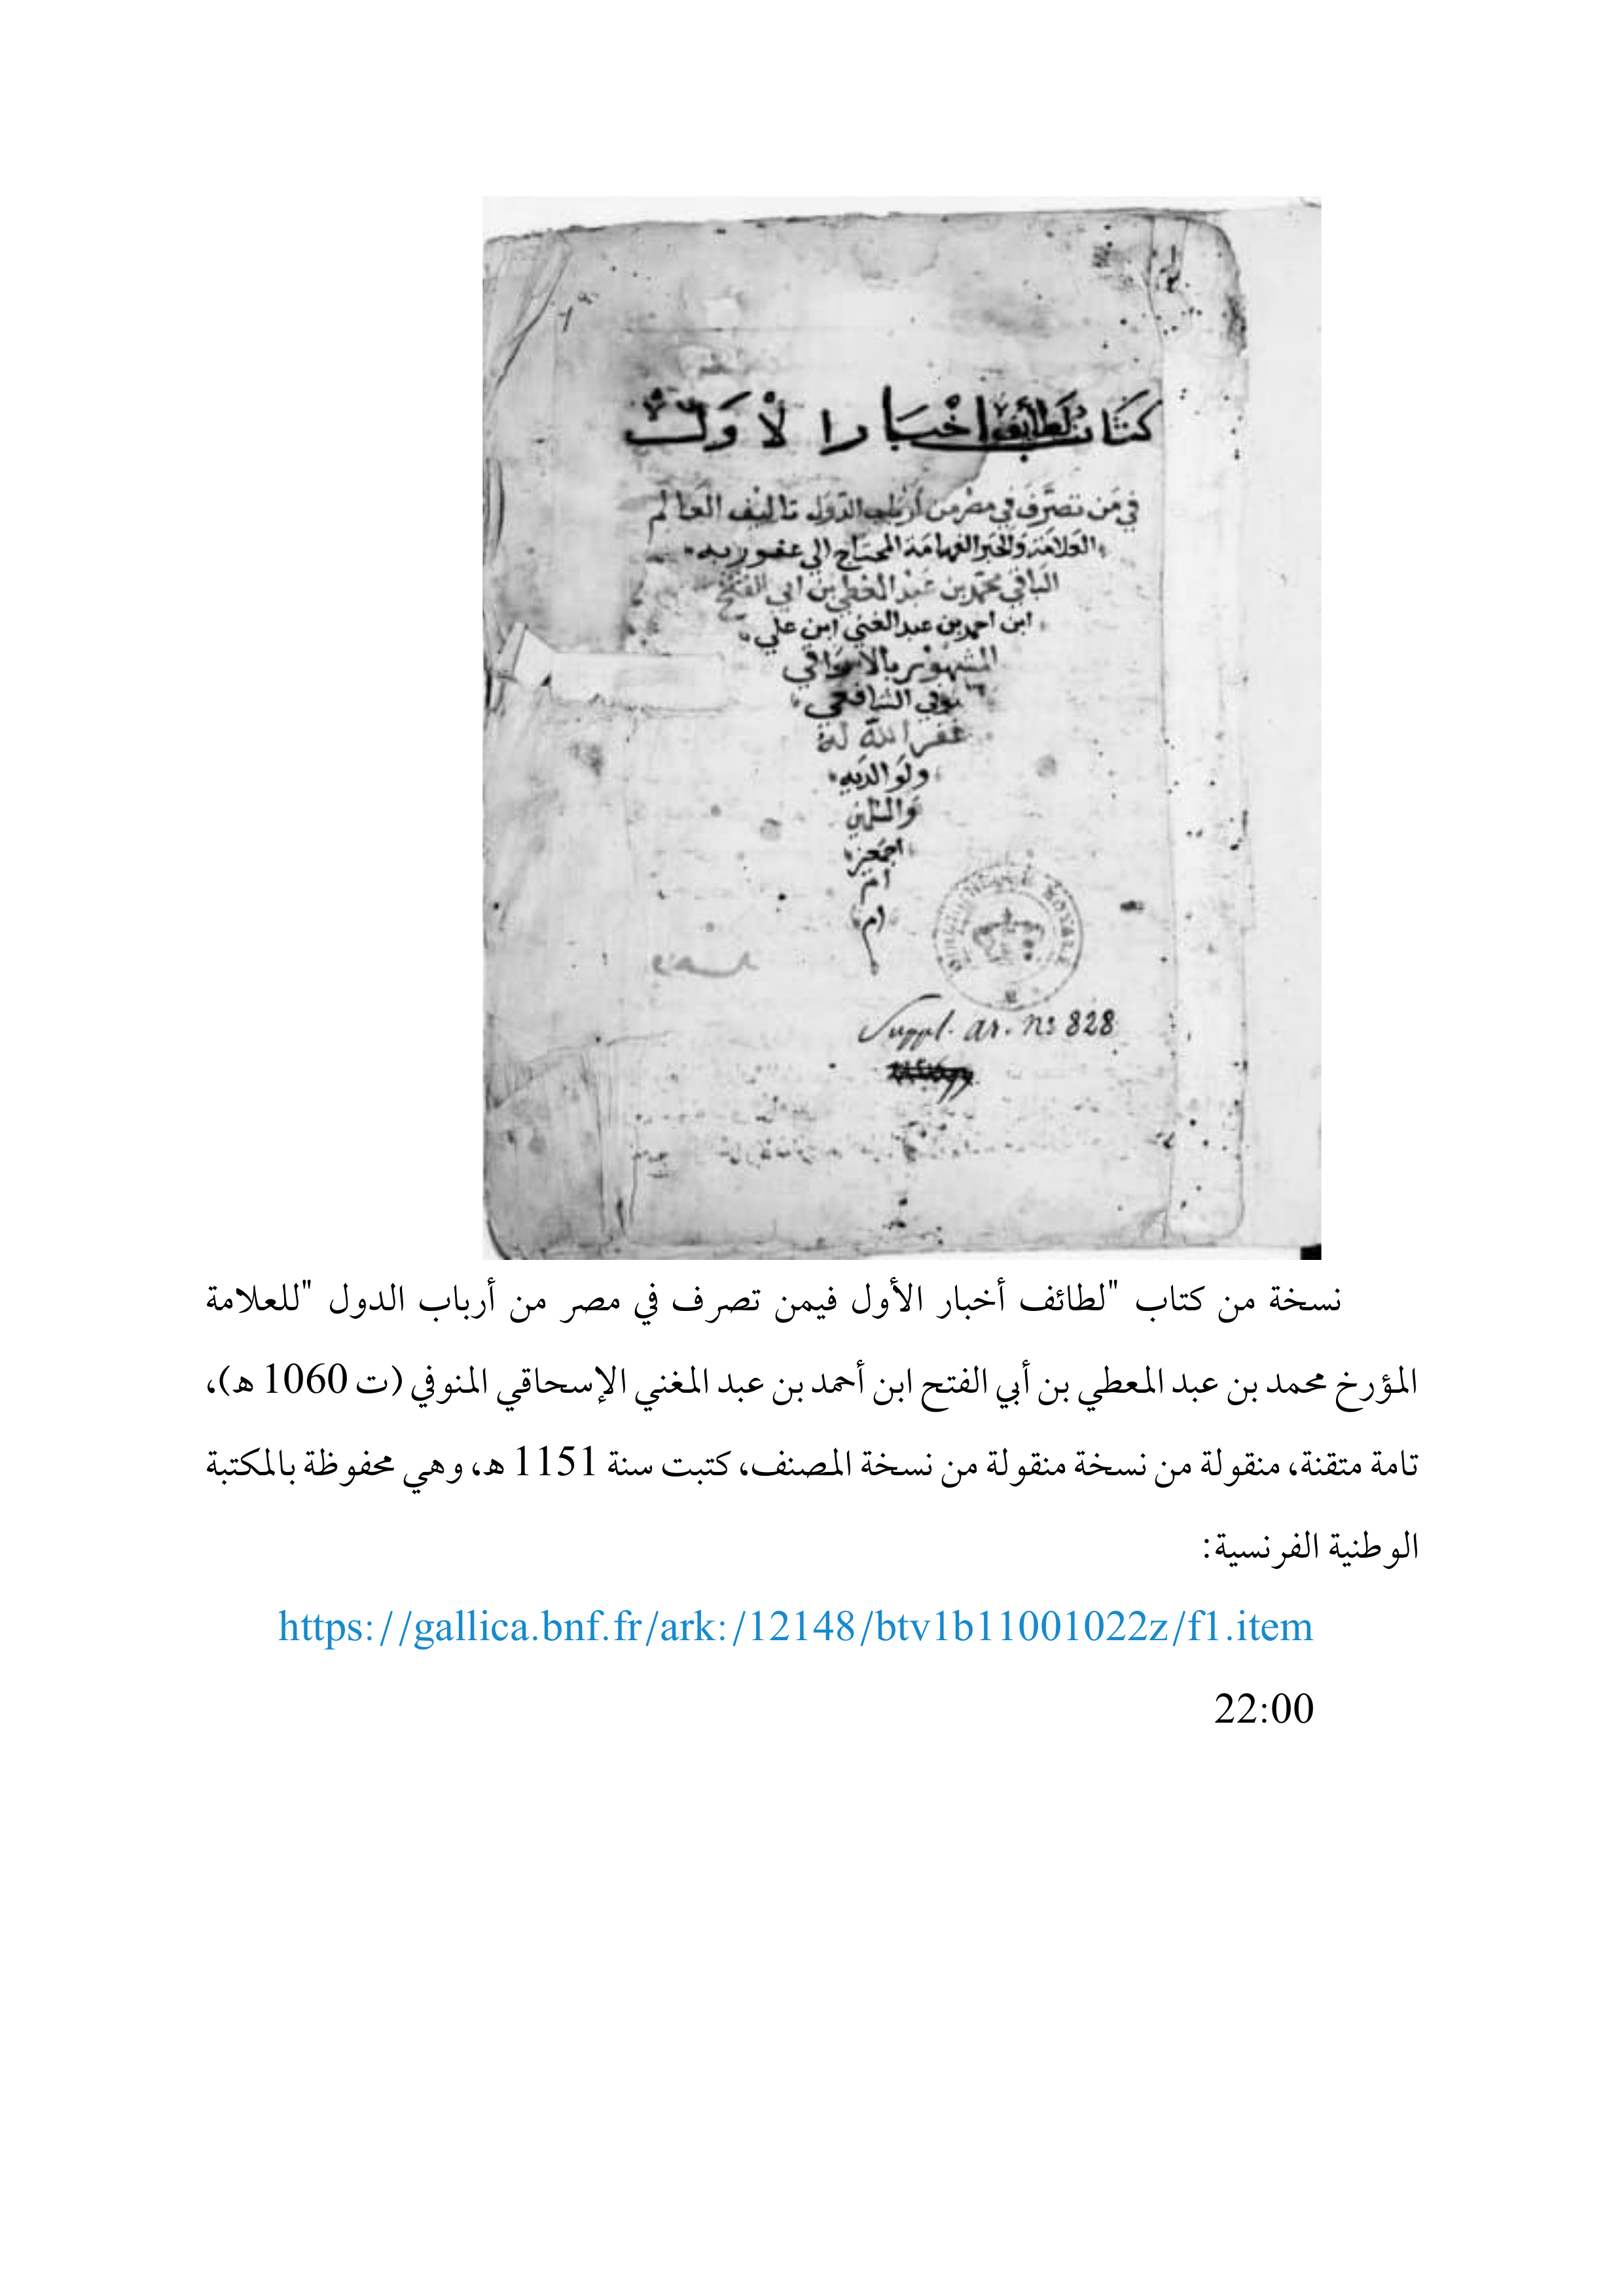 كتاب لطائف اخبار الأول
في من تصرف في مصر من أرباب الدول تاليف العالم
العلامة والحبر الفهامة المحتاج الي عفو ربه
الباقي محمد بن عبد المعطي بن ابي الفتح
ابن احمد بن عبد الغني ابن علي
المشهور
الشافعي
غفر الله له
ولوالديه
والمسلمين
اجمعين
ام
ام
BIBLIOTHEQUE ROYALE
Suppl. ar. no 828
نسخة من كتاب "لطائف أخبار الأول فيمن تصرف في مصر من أرباب الدول "للعلامة
المؤرخ محمد بن عبد المعطي بن أبي الفتح ابن أحمد بن عبد المغني الإسحاقي المنوفي (ت 1060 ه)،
تامة متقنة، منقولة من نسخة منقولة من نسخة المصنف، كتبت سنة 1151 ه، وهي محفوظة بالمكتبة
الوطنية الفرنسية:
https://gallica.bnf.fr/ark:/12148/btv1b11001022z/f1.item
22:00